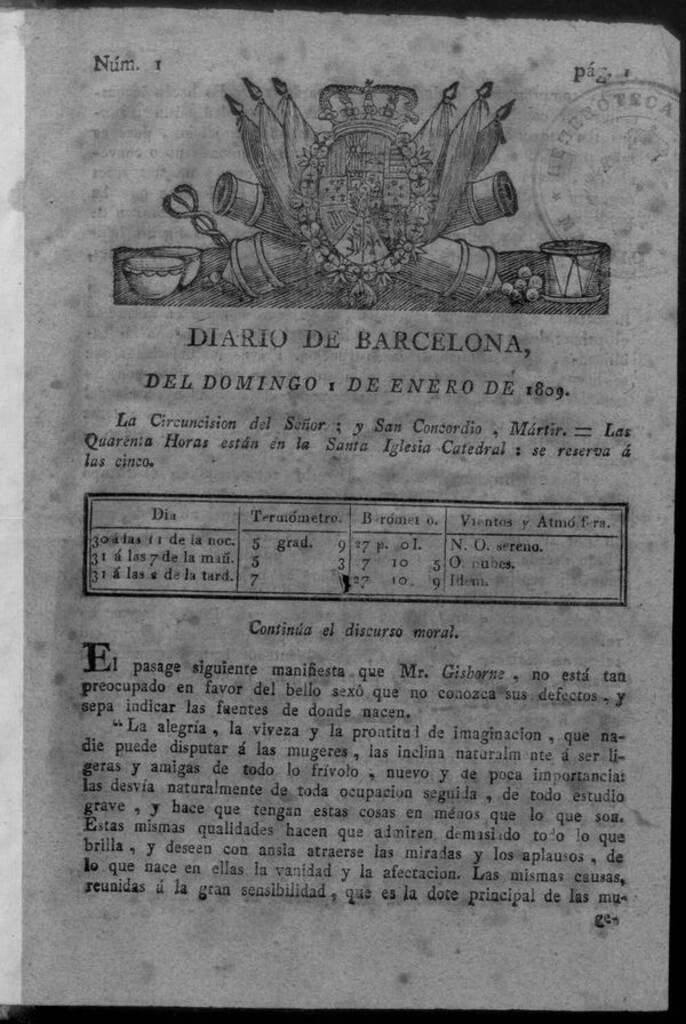 Núm. 1
pág. 1
HEMEROTECA
DIARIO DE BARCELONA,
DEL DOMINGO 1 DE ENERO DE 1809.
La Circuncision del Señor ; y San Concordio , Mártir. = Las
Quarenta Horas están en la Santa Iglesia Catedral : se reserva á
las cinco.
Dia Termómetro. Barómetro. Vientos y Atmósfera.
30 á las 11 de la noc. 5 grad. 9 27 p. 01. N. O. sereno.
31 á las 7 de la mañ. 5 3 7 10 5 O. nubes.
31 á las 2 de la tard. 7 27 10 9 Idem.
Continúa el discurso moral.
El pasage siguiente manifiesta que Mr. Gisborne , no está tan
preocupado en favor del bello sexô que no conozca sus defectos , y
sepa indicar las fuentes de donde nacen.
“La alegría , la viveza y la prontitud de imaginacion , que na-
die puede disputar á las mugeres , las inclina naturalmente á ser li-
geras y amigas de todo lo frívolo , nuevo y de poca importancia:
las desvía naturalmente de toda ocupacion seguida , de todo estudio
grave , y hace que tengan estas cosas en ménos que lo que son.
Estas mismas qualidades hacen que admiren demasiado todo lo que
brilla , y deseen con ansia atraerse las miradas y los aplausos , de
lo que nace en ellas la vanidad y la afectacion. Las mismas causas,
reunidas á la gran sensibilidad , que es la dote principal de las mu-
ge-